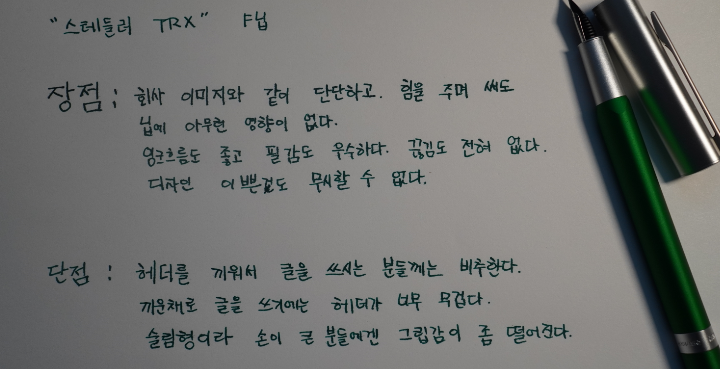 "스테들러 TRX" F닙
장점 : 회사 이미지와 같이 단단하고. 힘을 주며 써도
닙에 아무런 영향이 없다.
잉크흐름도 좋고 필감도 우수하다. 끊김도 전혀 없다.
디자인 이쁜것도 무시할 수 없다.
단점 : 헤더를 끼워서 글을 쓰시는 분들께는 비추한다.
끼운채로 글을 쓰기에는 헤더가 너무 무겁다.
슬림형이라 손이 큰 분들에겐 그립감이 좀 떨어진다.